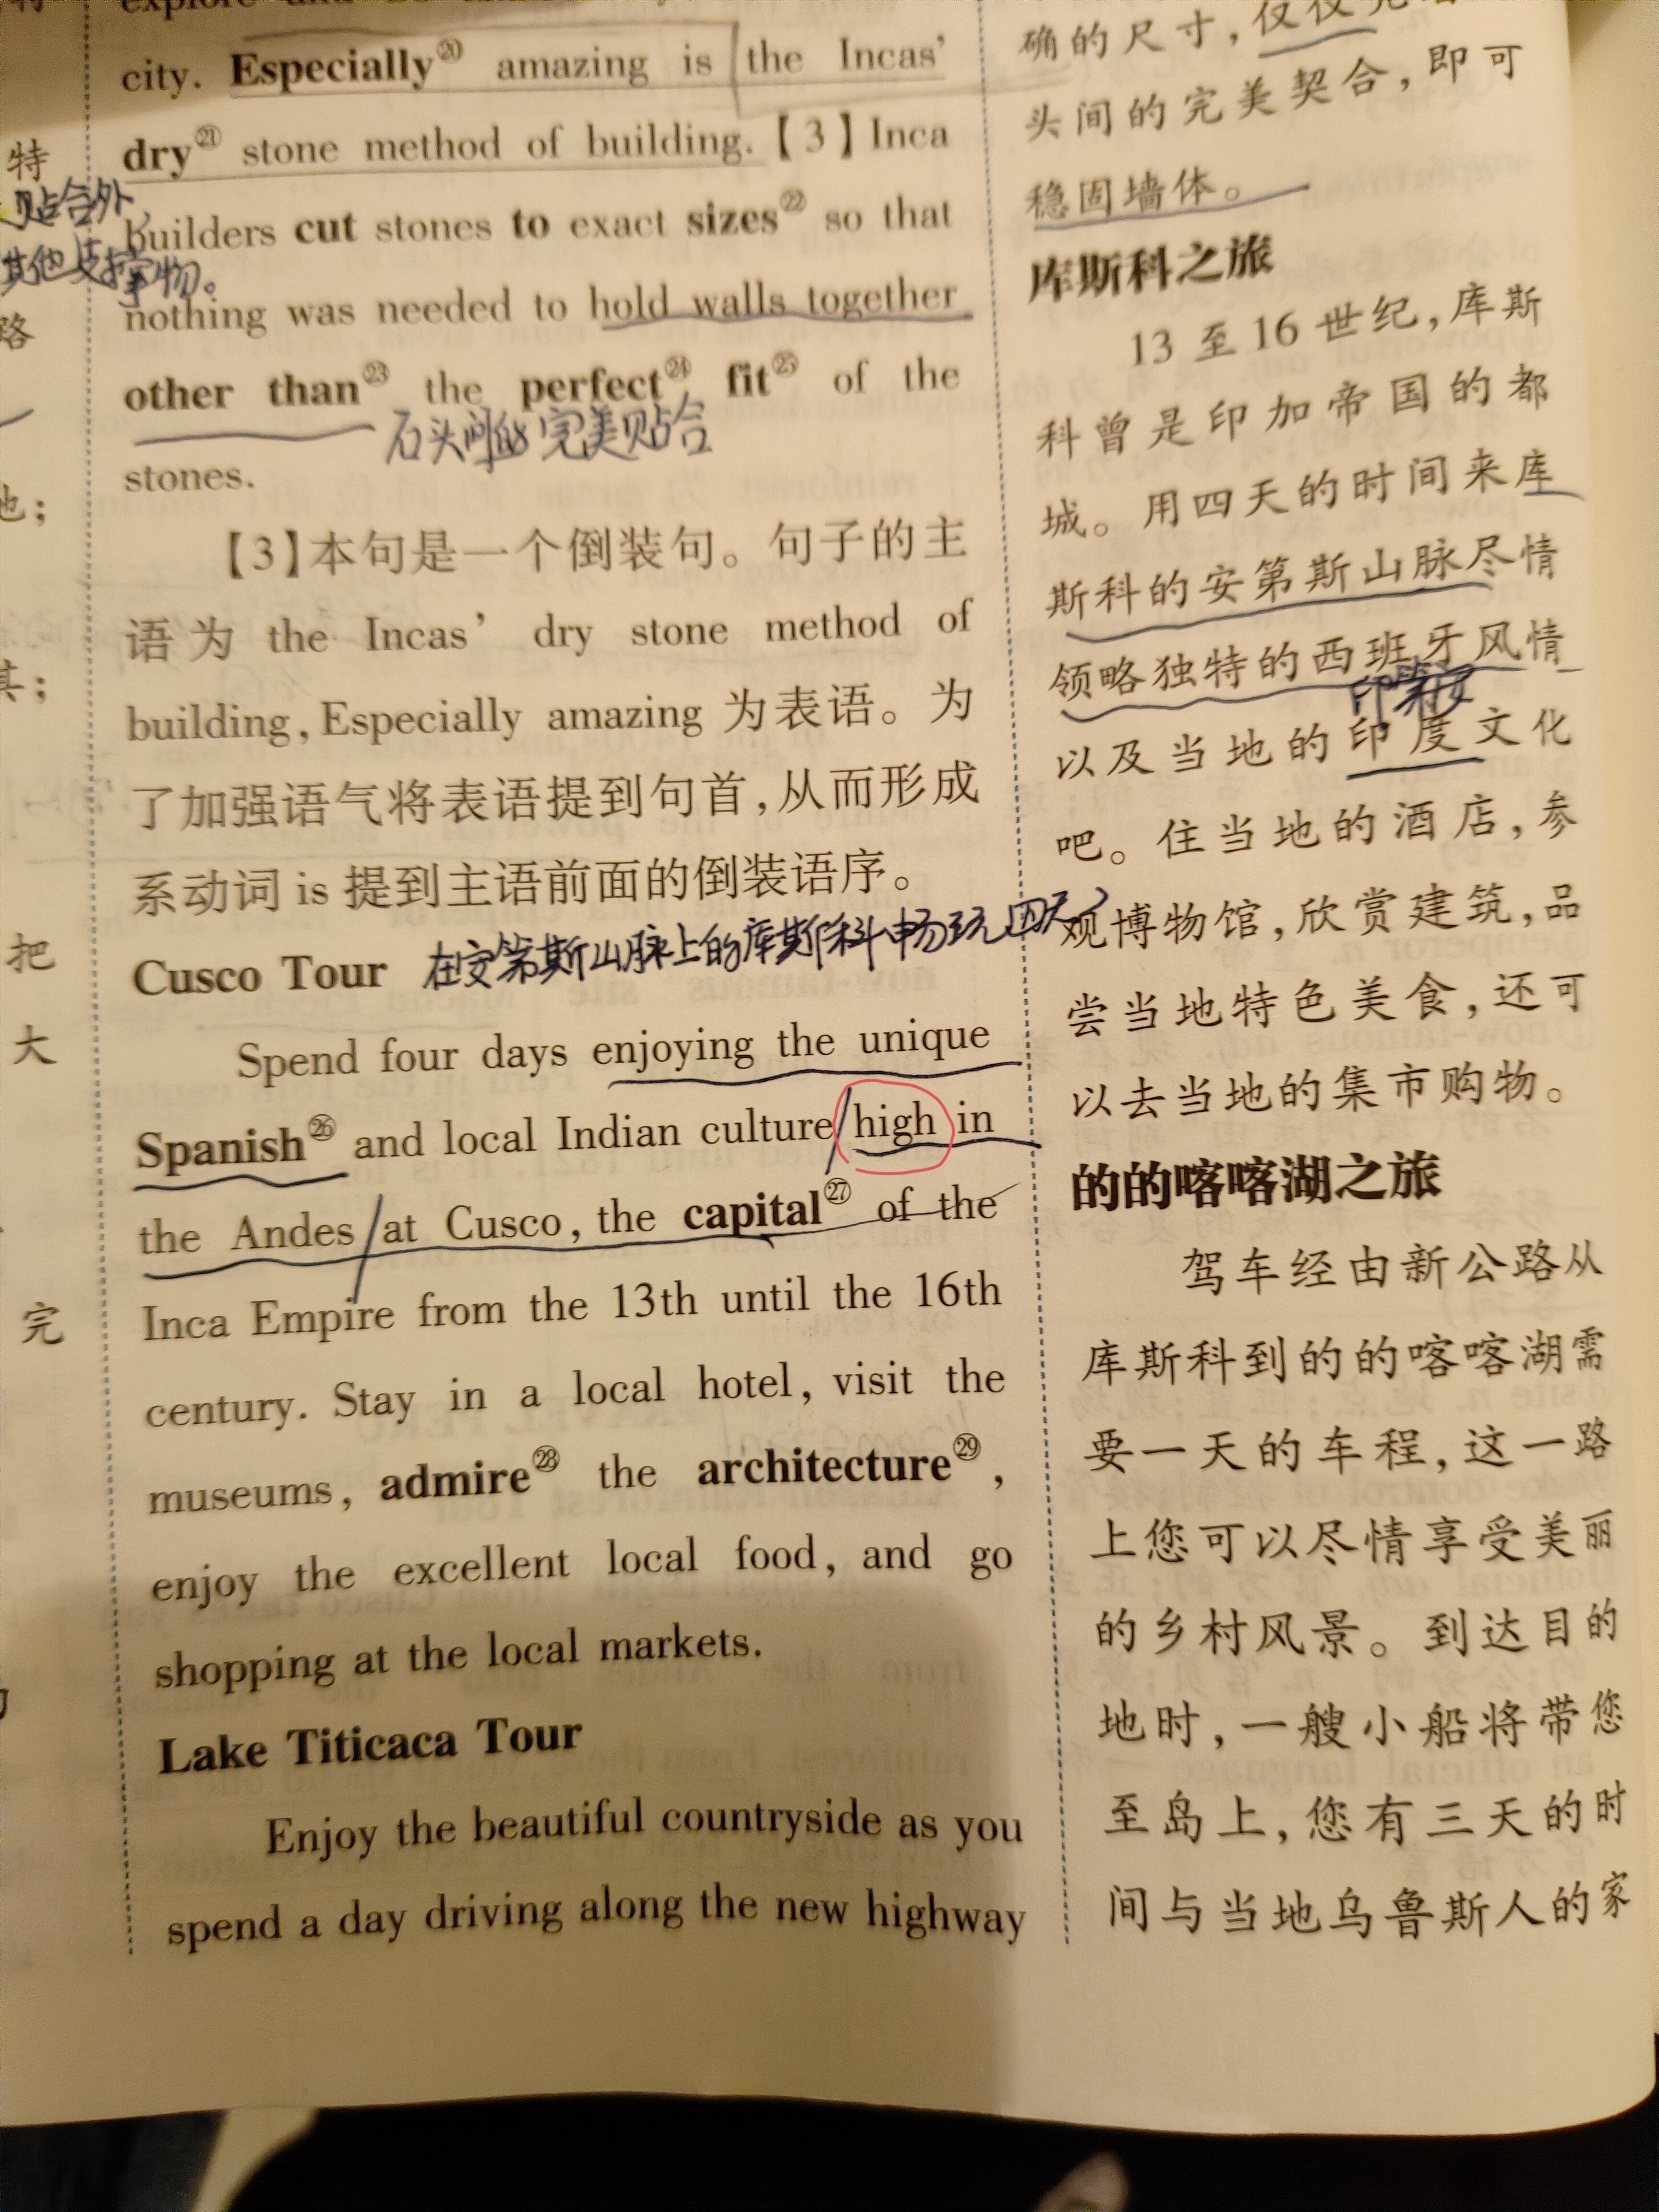 city. Especially⑳ amazing is the Incas'
dry㉑ stone method of building.【3】Inca
builders cut stones to exact sizes㉒ so that
nothing was needed to hold walls together
other than㉓ the perfect㉔ fit㉕ of the
石头间的完美贴合
stones.
【3】本句是一个倒装句。句子的主
语为 the Incas' dry stone method of
building, Especially amazing 为表语。为
了加强语气将表语提到句首,从而形成
系动词 is 提到主语前面的倒装语序。
Cusco Tour 在安第斯山脉上的库斯科畅玩四天
Spend four days enjoying the unique
Spanish㉖ and local Indian culture high in
the Andes at Cusco, the capital㉗ of the
Inca Empire from the 13th until the 16th
century. Stay in a local hotel, visit the
museums, admire㉘ the architecture㉙,
enjoy the excellent local food, and go
shopping at the local markets.
Lake Titicaca Tour
Enjoy the beautiful countryside as you
spend a day driving along the new highway
特
贴合外
其他支撑物。
路
他;
其;
把
大
完
确的尺寸,仅仅
头间的完美契合,即可
稳固墙体。
库斯科之旅
13 至 16 世纪,库斯
科曾是印加帝国的都
城。用四天的时间来库
斯科的安第斯山脉尽情
领略独特的西班牙风情
印第安
以及当地的印度文化
吧。住当地的酒店,参
观博物馆,欣赏建筑,品
尝当地特色美食,还可
以去当地的集市购物。
的的喀喀湖之旅
驾车经由新公路从
库斯科到的的喀喀湖需
要一天的车程,这一路
上您可以尽情享受美丽
的乡村风景。到达目的
地时,一艘小船将带您
至岛上,您有三天的时
间与当地乌鲁斯人的家